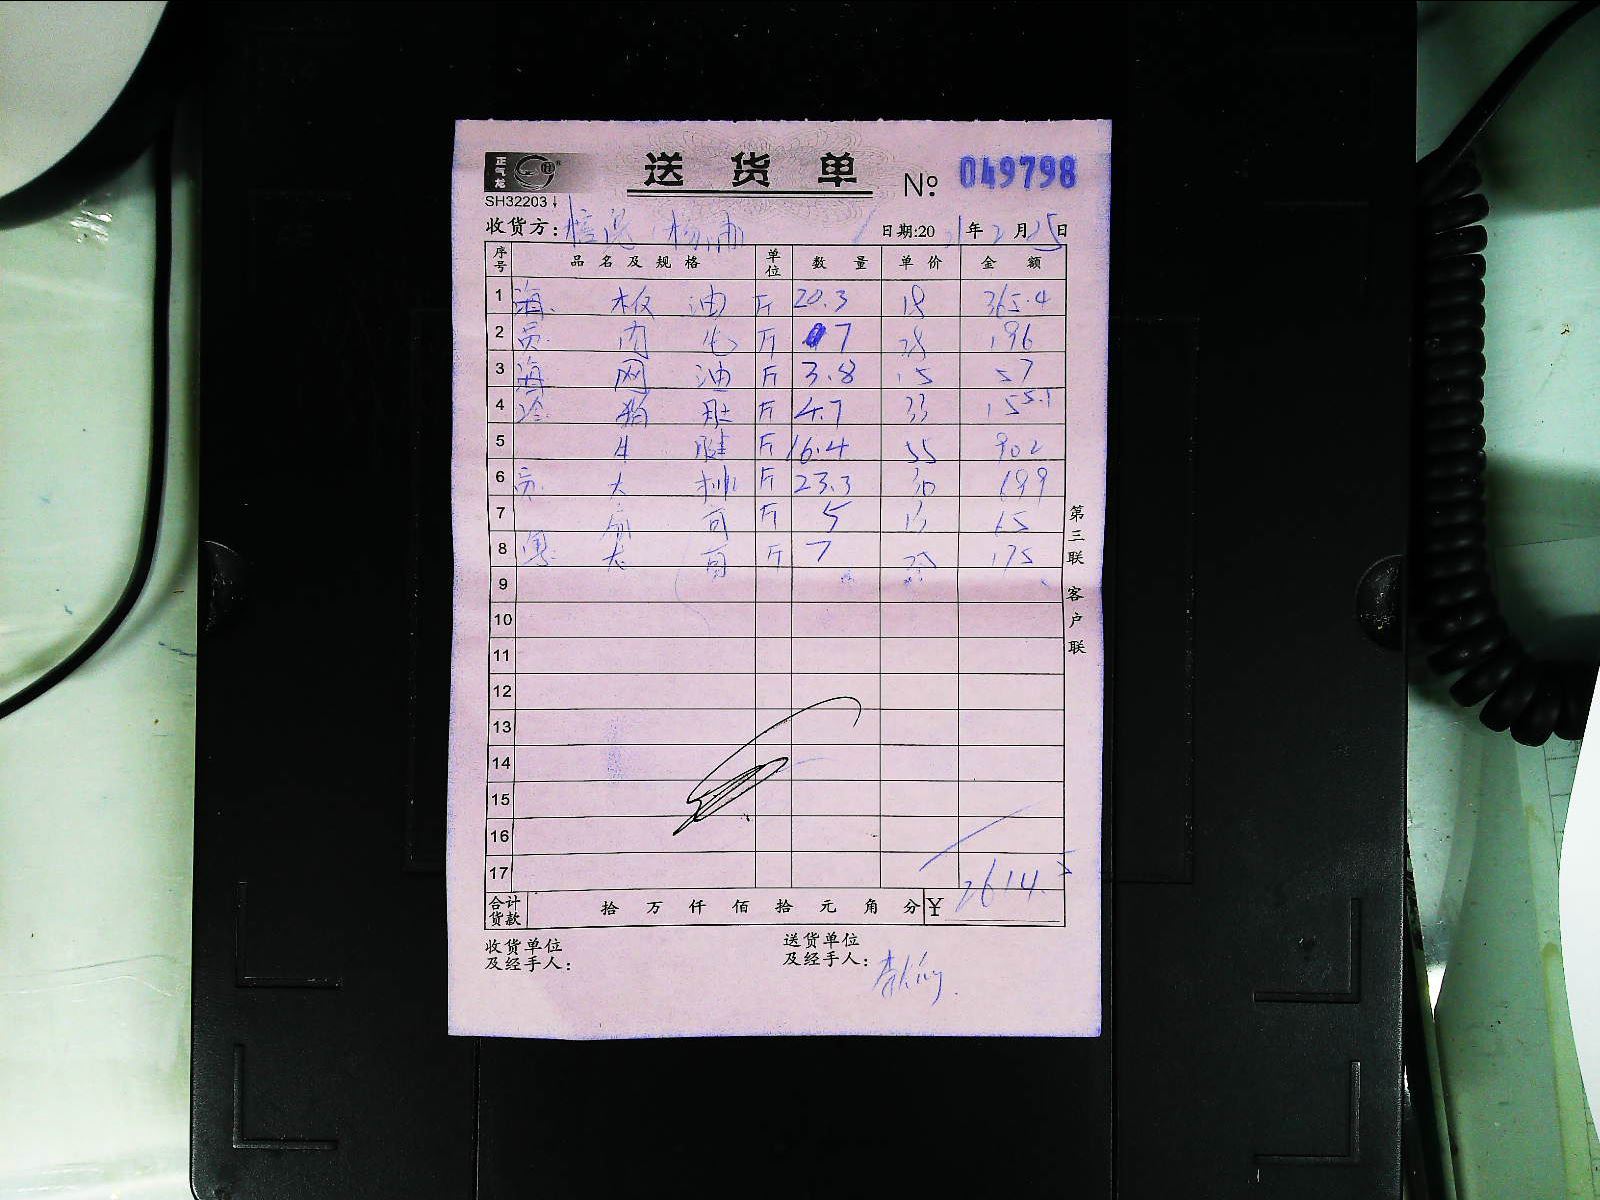 正气龙
送 货 单 № 049798
SH32203
收货方: 日期:2021年2月25日
序号 品名及规格 单位 数量 单价 金额
1 海. 板油 斤 20.3 18 365.4
2 肉 斤 7 28 196
3 海 网油 斤 3.8 15 57
4 肚 斤 4.7 33 155.1
5 牛腱 斤 16.4 55 902
6 大排 斤 23.3 30 699
7 斤 5 13 65
8 大 斤 7 25 175
9
10
11
12
13
14
15
16
17
合计货款 拾 万 仟 佰 拾 元 角 分 ¥ 2614.5
收货单位及经手人: 送货单位及经手人:
第三联 客户联